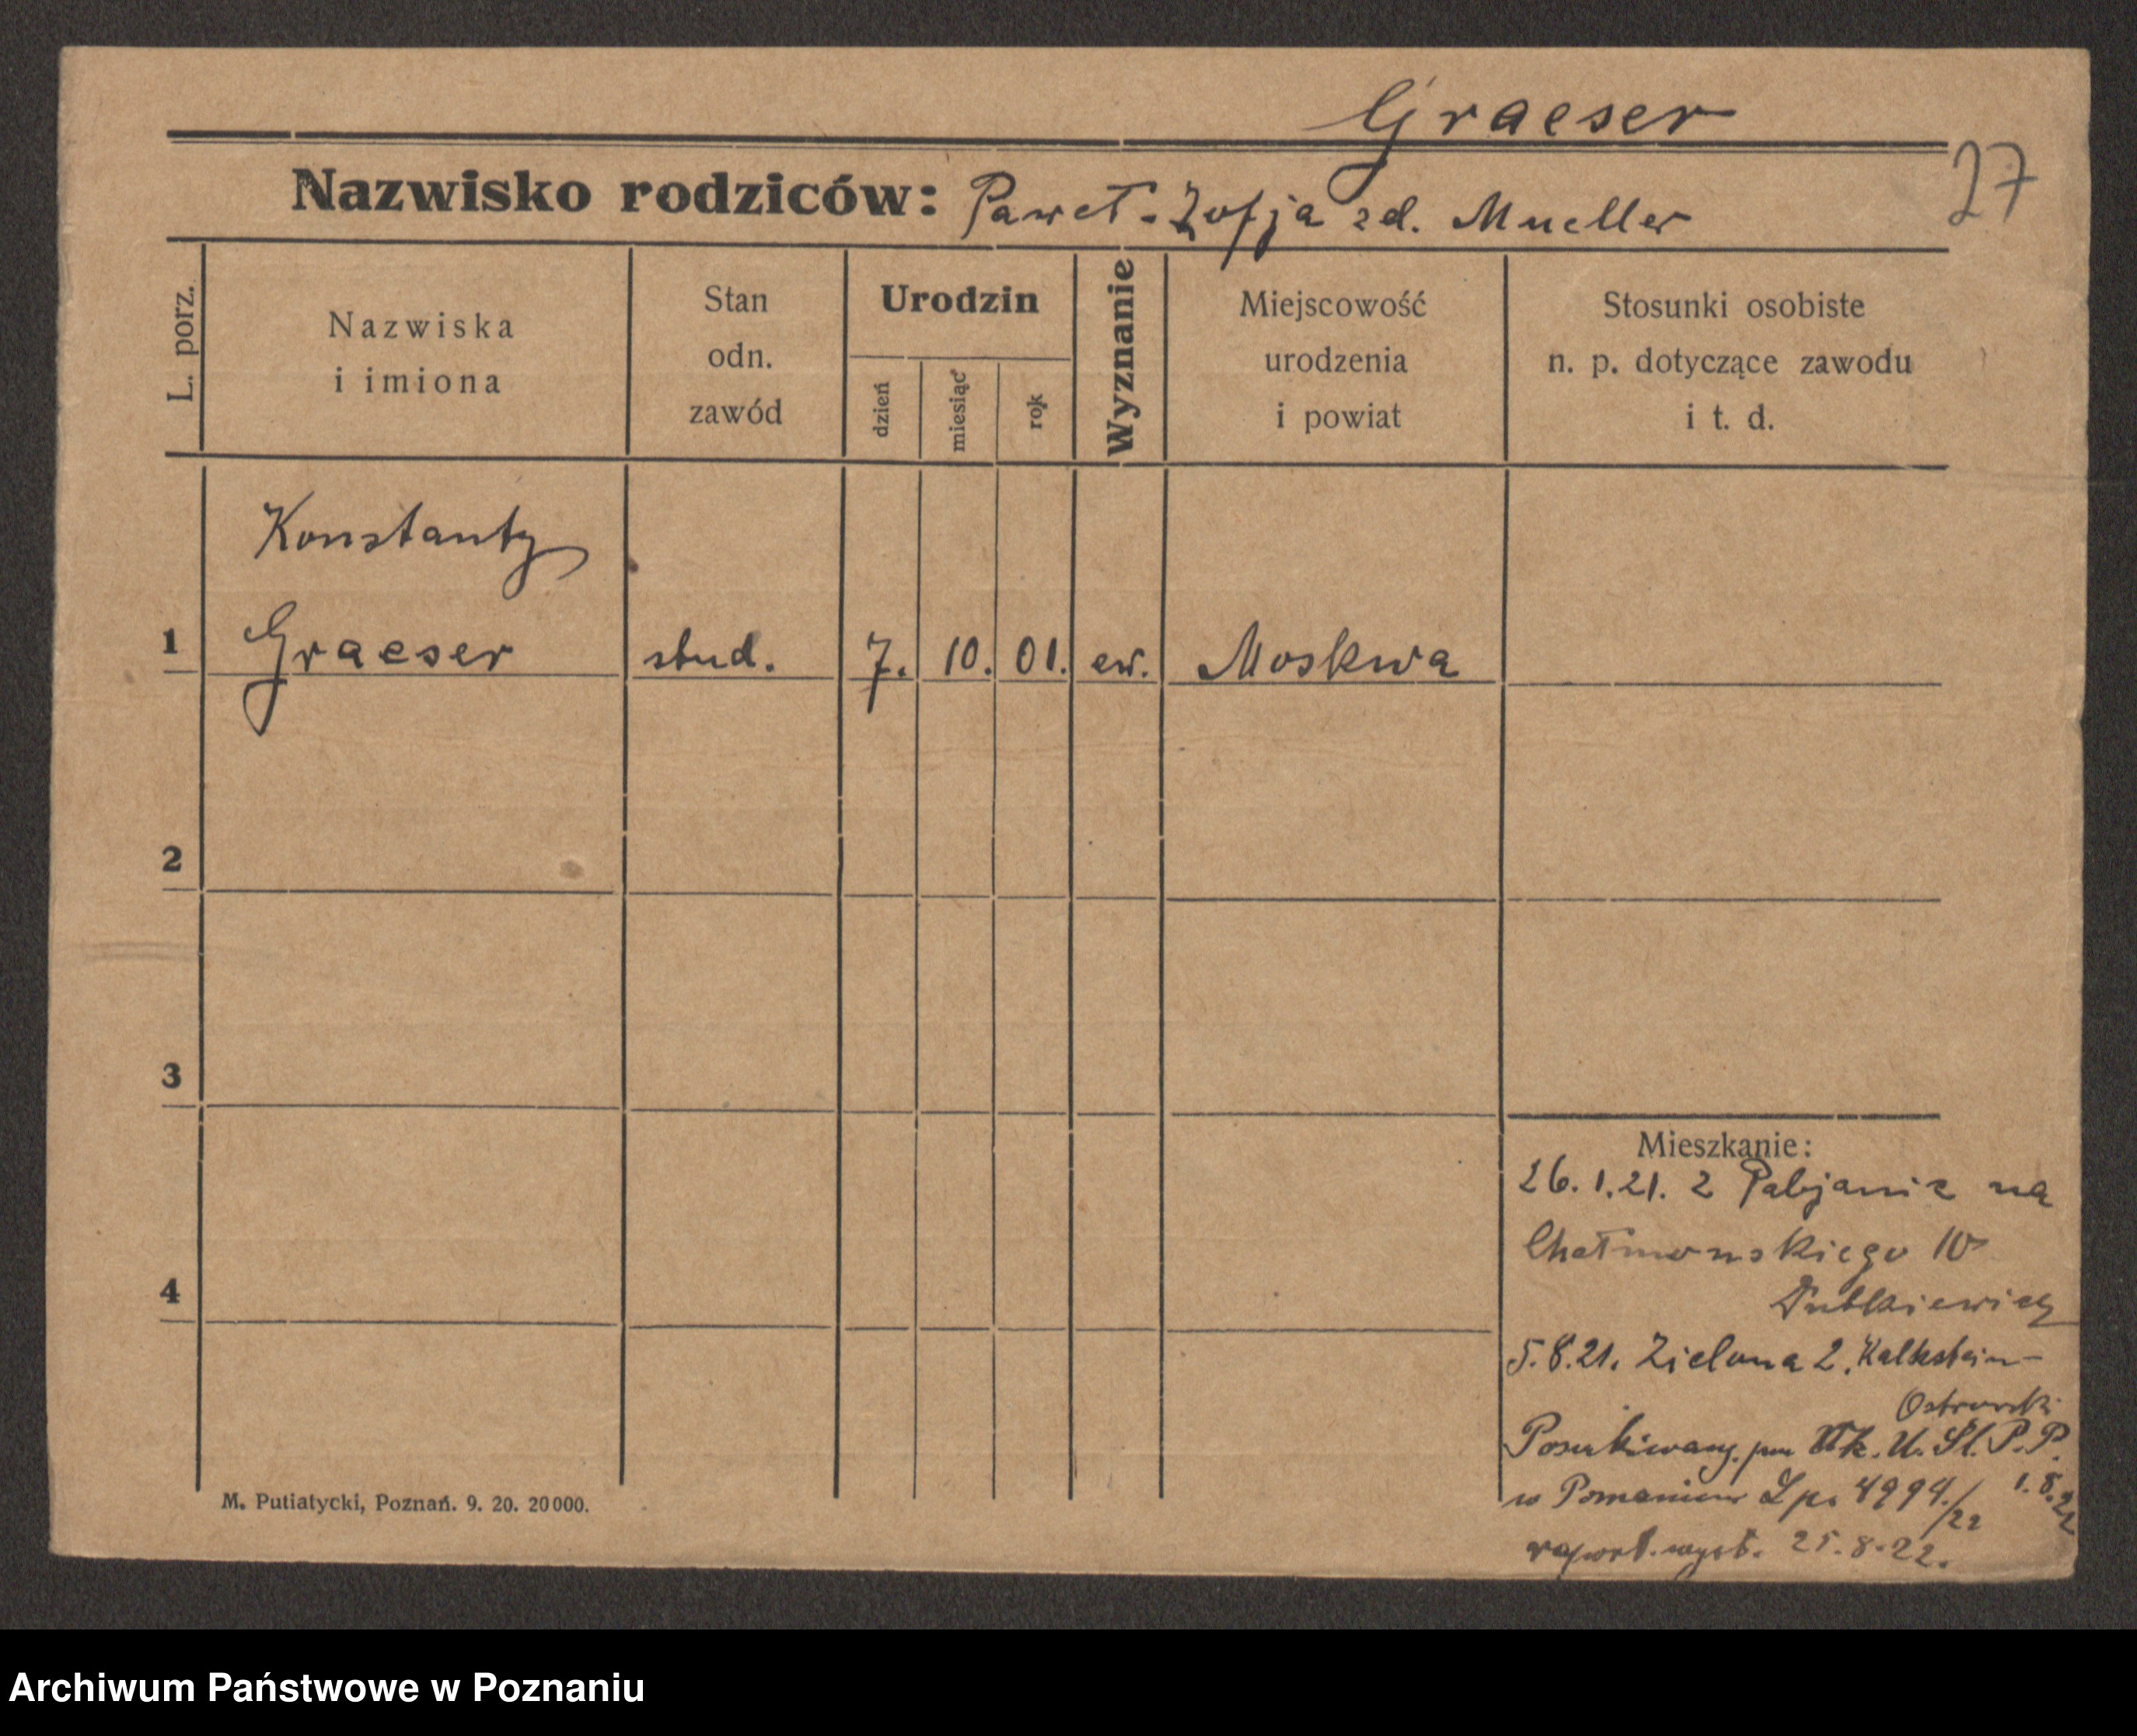 Graeser
27
Nazwisko rodziców: Paweł - Zofja zd. Mueller
L. porz.
Nazwiska
i imiona
Stan
odn.
zawód
Urodzin
dzień
miesiąc
rok
Wyznanie
Miejscowość
urodzenia
i powiat
Stosunki osobiste
n. p. dotyczące zawodu
i t. d.
Konstanty
1 Graeser stud. 7. 10. 01. ew. Moskwa
2
3
4
Mieszkanie:
26.1.21. z Pabjanic na
Chełmońskiego 10
5.8.21. Zielona 2. Kalkstein-
Ostrowski
Poszukiwany. U. Śl. P. P.
w Poznaniu L.p. 4994./22 1.8.22
raport. wyst. 25.8.22.
M. Putiatycki, Poznań. 9. 20. 20000.
Archiwum Państwowe w Poznaniu